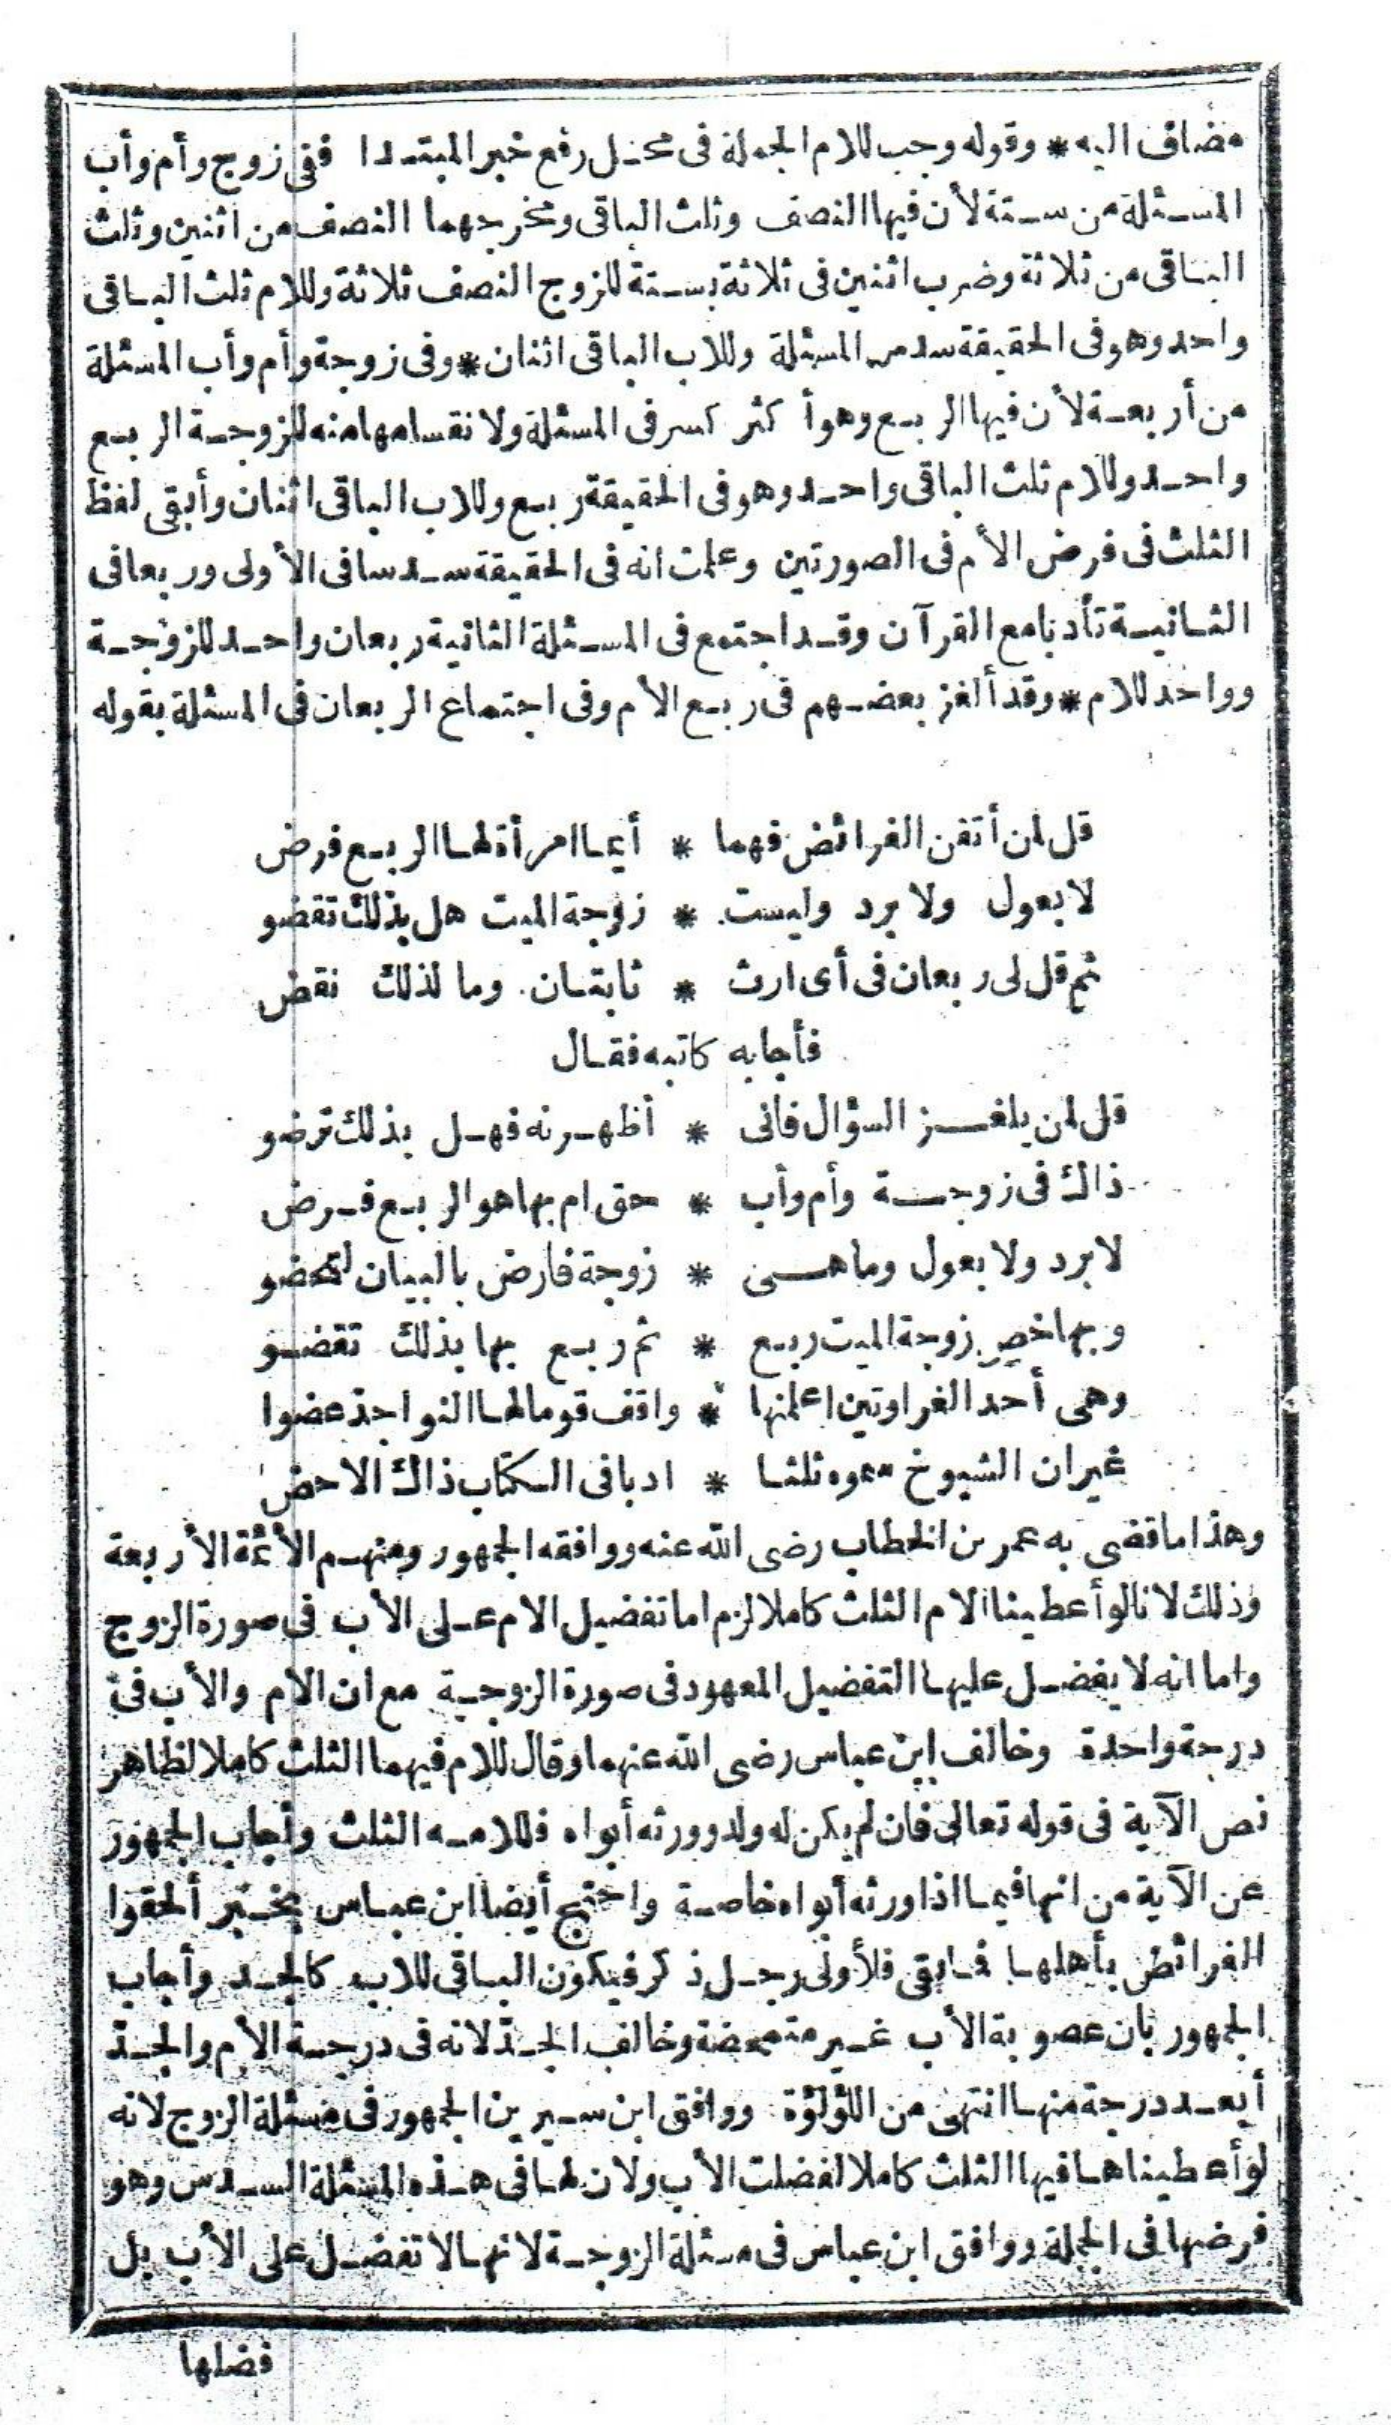 مضاف اليه * وقوله وجب للام الجملة فى محل رفع خبر المبتدا ففى زوج وأم وأب
المسئلة من ستة لأن فيها النصف وثلث الباقى ومخرجهما النصف من اثنين وثلث
الباقى من ثلاثة وضرب اثنين فى ثلاثة بستة للزوج النصف ثلاثة وللام ثلث الباقى
واحد وهو فى الحقيقة سدس المسئلة وللاب الباقى اثنان * وفى زوجة وأم وأب المسئلة
من أربعة لأن فيها الربع وهو أكثر كسر فى المسئلة ولانقسامها منه للزوجة الربع
واحد وللام ثلث الباقى واحد وهو فى الحقيقة ربع وللاب الباقى اثنان وأبقى لفظ
الثلث فى فرض الأم فى الصورتين وعلمت انه فى الحقيقة سدسا فى الأولى وربعا فى
الثانية تأدبا مع القرآن وقد اجتمع فى المسئلة الثانية ربعان واحد للزوجة
وواحد للام * وقد ألغز بعضهم فى ربع الأم وفى اجتماع الربعان فى المسئلة بقوله
قل لمن أتقن الفرائض فهما * أيما امرأة لها الربع فرض
لا بعول ولا برد وليست * زوجة الميت هل بذلك تقضو
ثم قل لى ربعان فى أى ارث * ثابتان وما لذلك نقض
فأجابه كاتبه فقال
قل لمن يلغز السؤال فانى * أظهرنه فهل بذلك ترضو
ذاك فى زوجة وأم وأب * حق ام بها هو الربع فرض
لا برد ولا بعول وما هى * زوجة فارض بالبيان لتحضو
وبها خص زوجة الميت ربع * ثم ربع بها بذلك تقضو
وهى أحد الغراوتين اعلمنها * واقف قوما لها النواجذ عضوا
غير ان الشيوخ سموه ثلثا * ادبا فى الكتاب ذاك الاحض
وهذا ما قضى به عمر بن الخطاب رضى الله عنه ووافقه الجمهور ومنهم الأئمة الأربعة
وذلك لانا لو أعطينا الام الثلث كاملا لزم اما تفضيل الام على الأب فى صورة الزوج
واما انه لا يفضل عليها التفضيل المعهود فى صورة الزوجية مع ان الأم والأب فى
درجة واحدة وخالف ابن عباس رضى الله عنهما وقال للام فيهما الثلث كاملا لظاهر
نص الآية فى قوله تعالى فان لم يكن له ولد وورثه أبواه فلامه الثلث وأجاب الجمهور
عن الآية من انها فيما اذا ورثه أبواه خاصة واحتج أيضا ابن عباس بخبر ألحقوا
الفرائض بأهلها فما بقى فلأولى رجل ذكر فيكون الباقى للاب كالجد وأجاب
الجمهور بان عصوبة الأب غير متمحضة وخالف الجد لانه فى درجة الأم والجد
أبعد درجة منها انتهى من اللؤلؤة ووافق ابن سيرين الجمهور فى مسئلة الزوج لانه
لو أعطيناها فيها الثلث كاملا لفضلت الأب ولان لها فى هذه المسئلة السدس وهو
فرضها فى الجملة ووافق ابن عباس فى مسئلة الزوجة لانها لا تفضل على الأب بل
فضلها